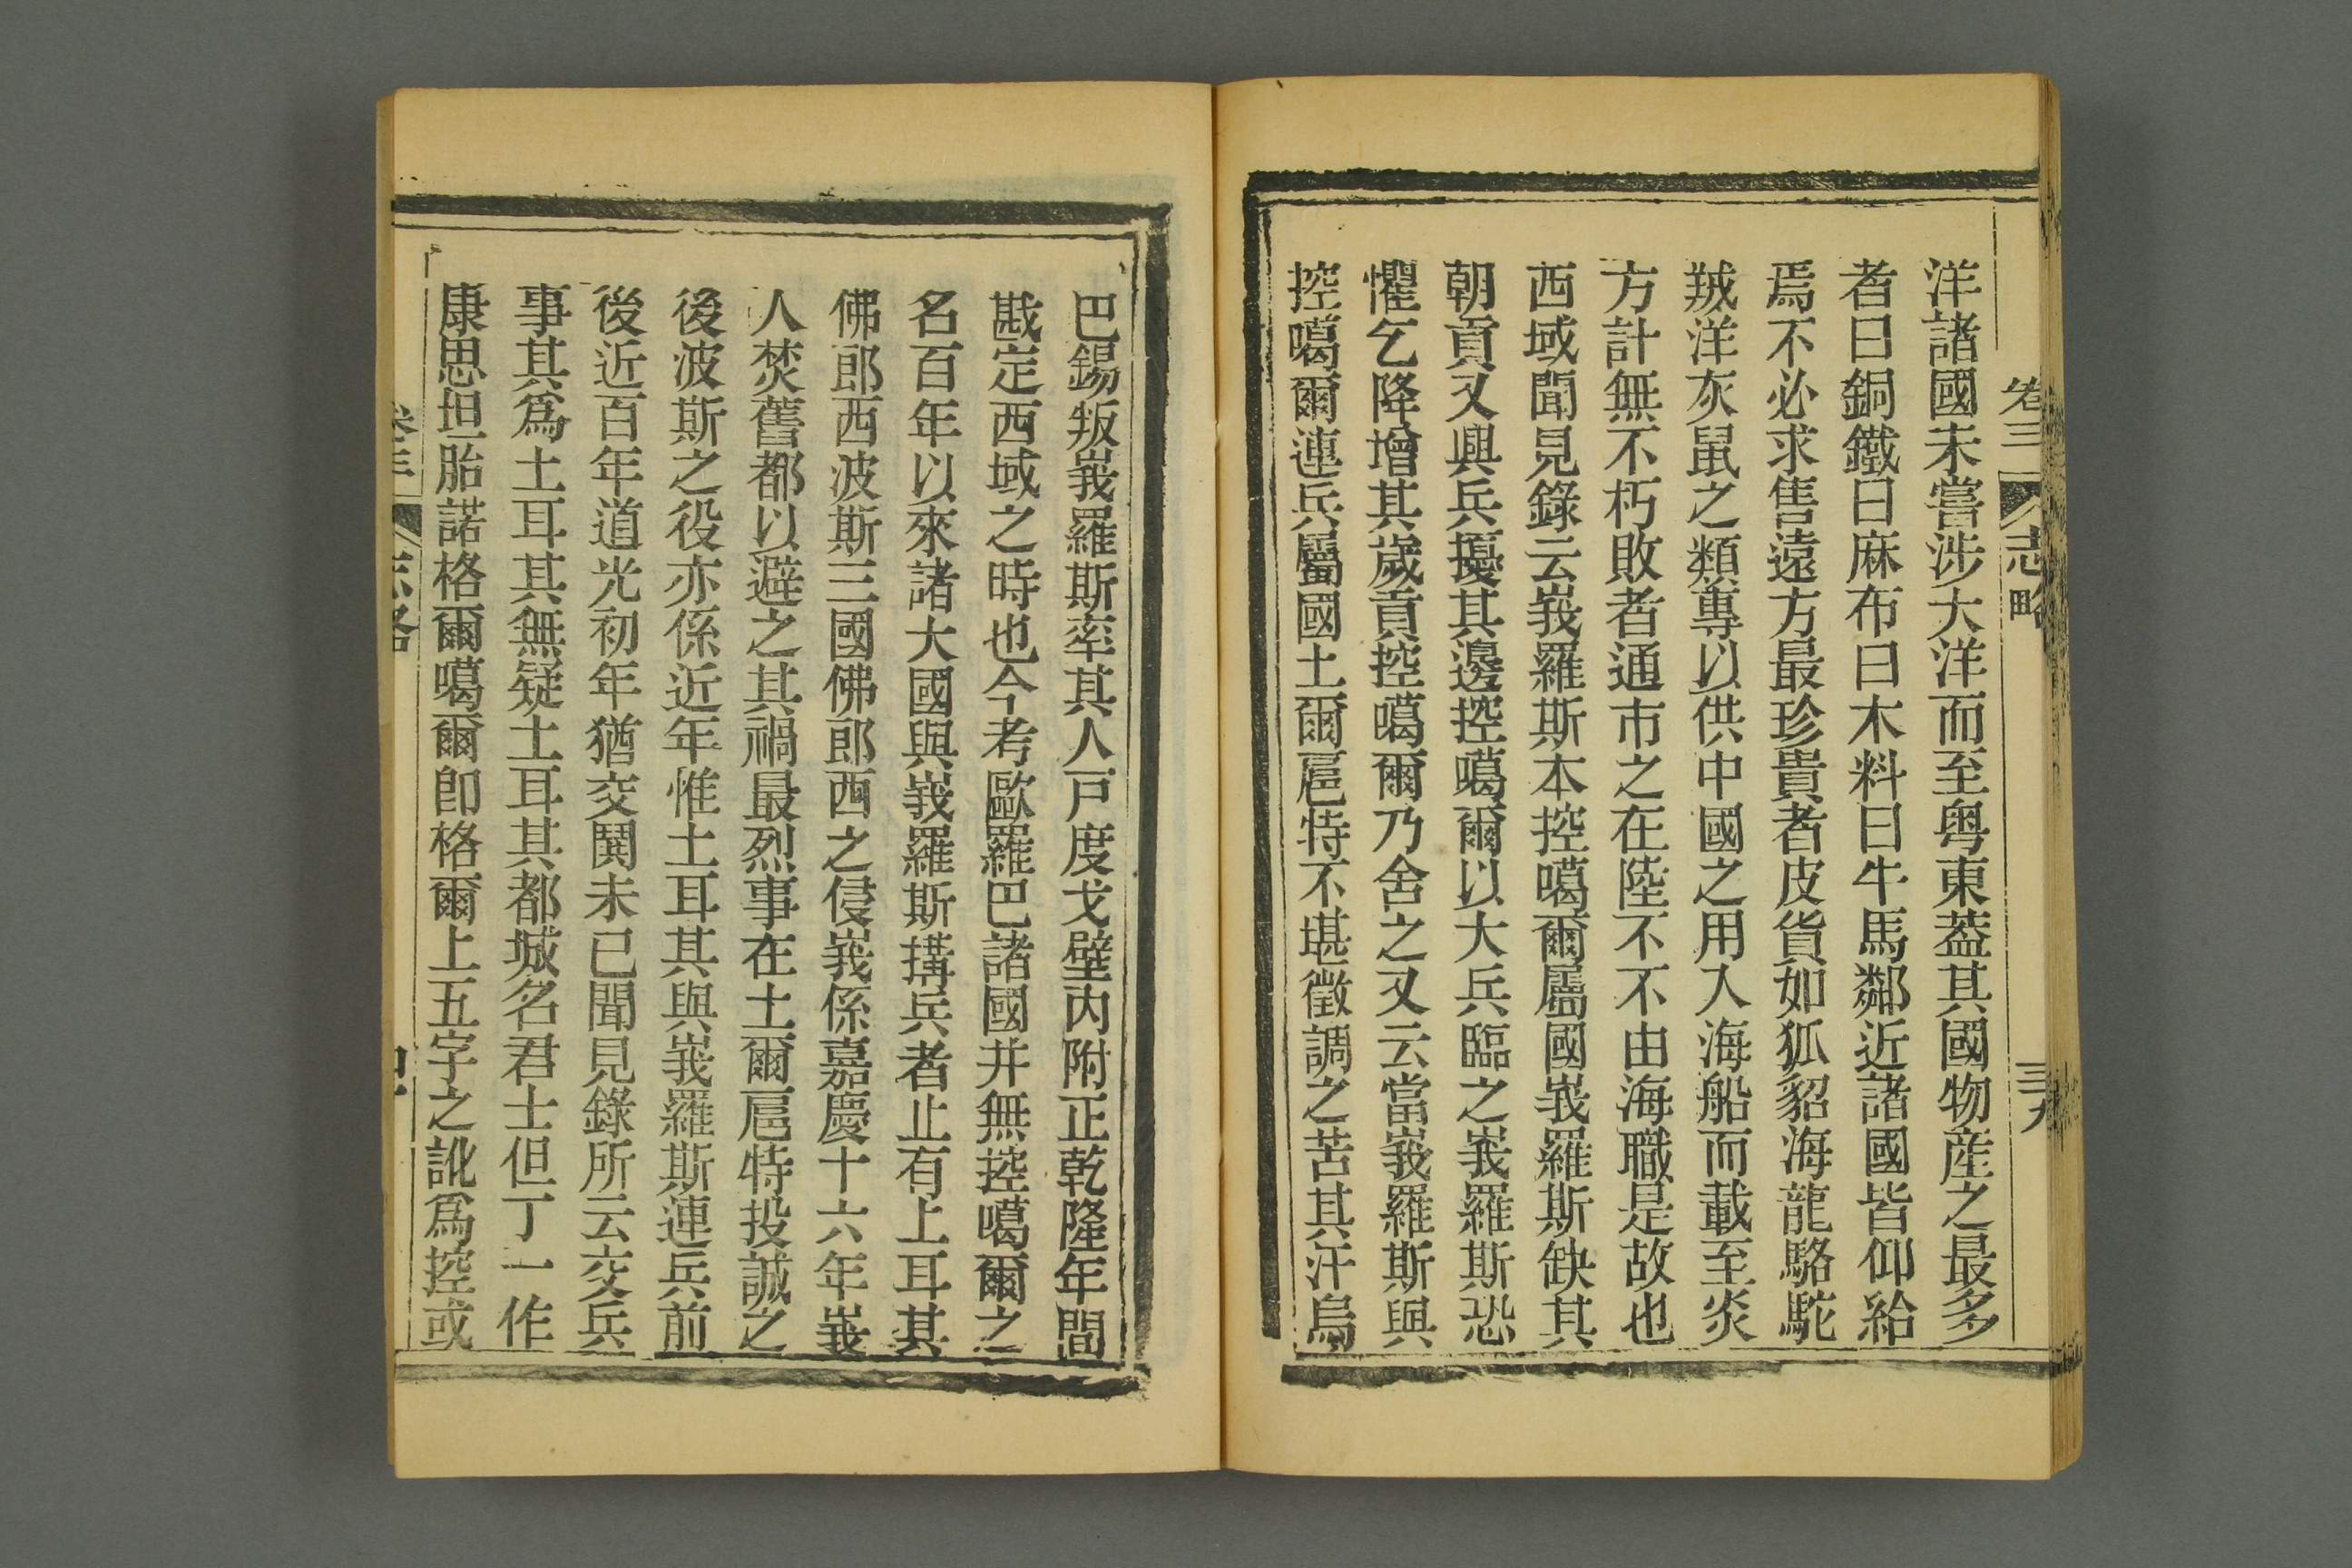 卷三 志略 三九
洋諸國未嘗涉大洋而至粵東葢其國物産之最多
者曰銅鐵曰麻布曰木料曰牛馬鄰近諸國皆仰給
焉不必求售遠方最珍貴者皮貨如狐貂海龍駱駝
羢洋灰鼠之類專以供中國之用入海船而載至炎
方計無不朽敗者通市之在陸不不由海職是故也
西域聞見錄云峩羅斯本控噶爾屬國峩羅斯缺其
朝貢又興兵擾其邊控噶爾以大兵臨之峩羅斯恐
懼乞降增其歲貢控噶爾乃舍之又云當峩羅斯與
控噶爾連兵屬國土爾扈特不堪徵調之苦其汗烏
巴錫叛峩羅斯率其人戸度戈壁内附正乾隆年間
戡定西域之時也今考歐羅巴諸國并無控噶爾之
名百年以來諸大國與峩羅斯搆兵者止有上耳其
佛郎西波斯三國佛郎西之侵峩係嘉慶十六年峩
人焚舊都以避之其禍最烈事在土爾扈特投誠之
後波斯之役亦係近年惟土耳其與峩羅斯連兵前
後近百年道光初年猶交鬨未已聞見錄所云交兵
事其為土耳其無疑土耳其都城名君士但丁一作
康思坦胎諾格爾噶爾卽格爾上五字之訛為控或